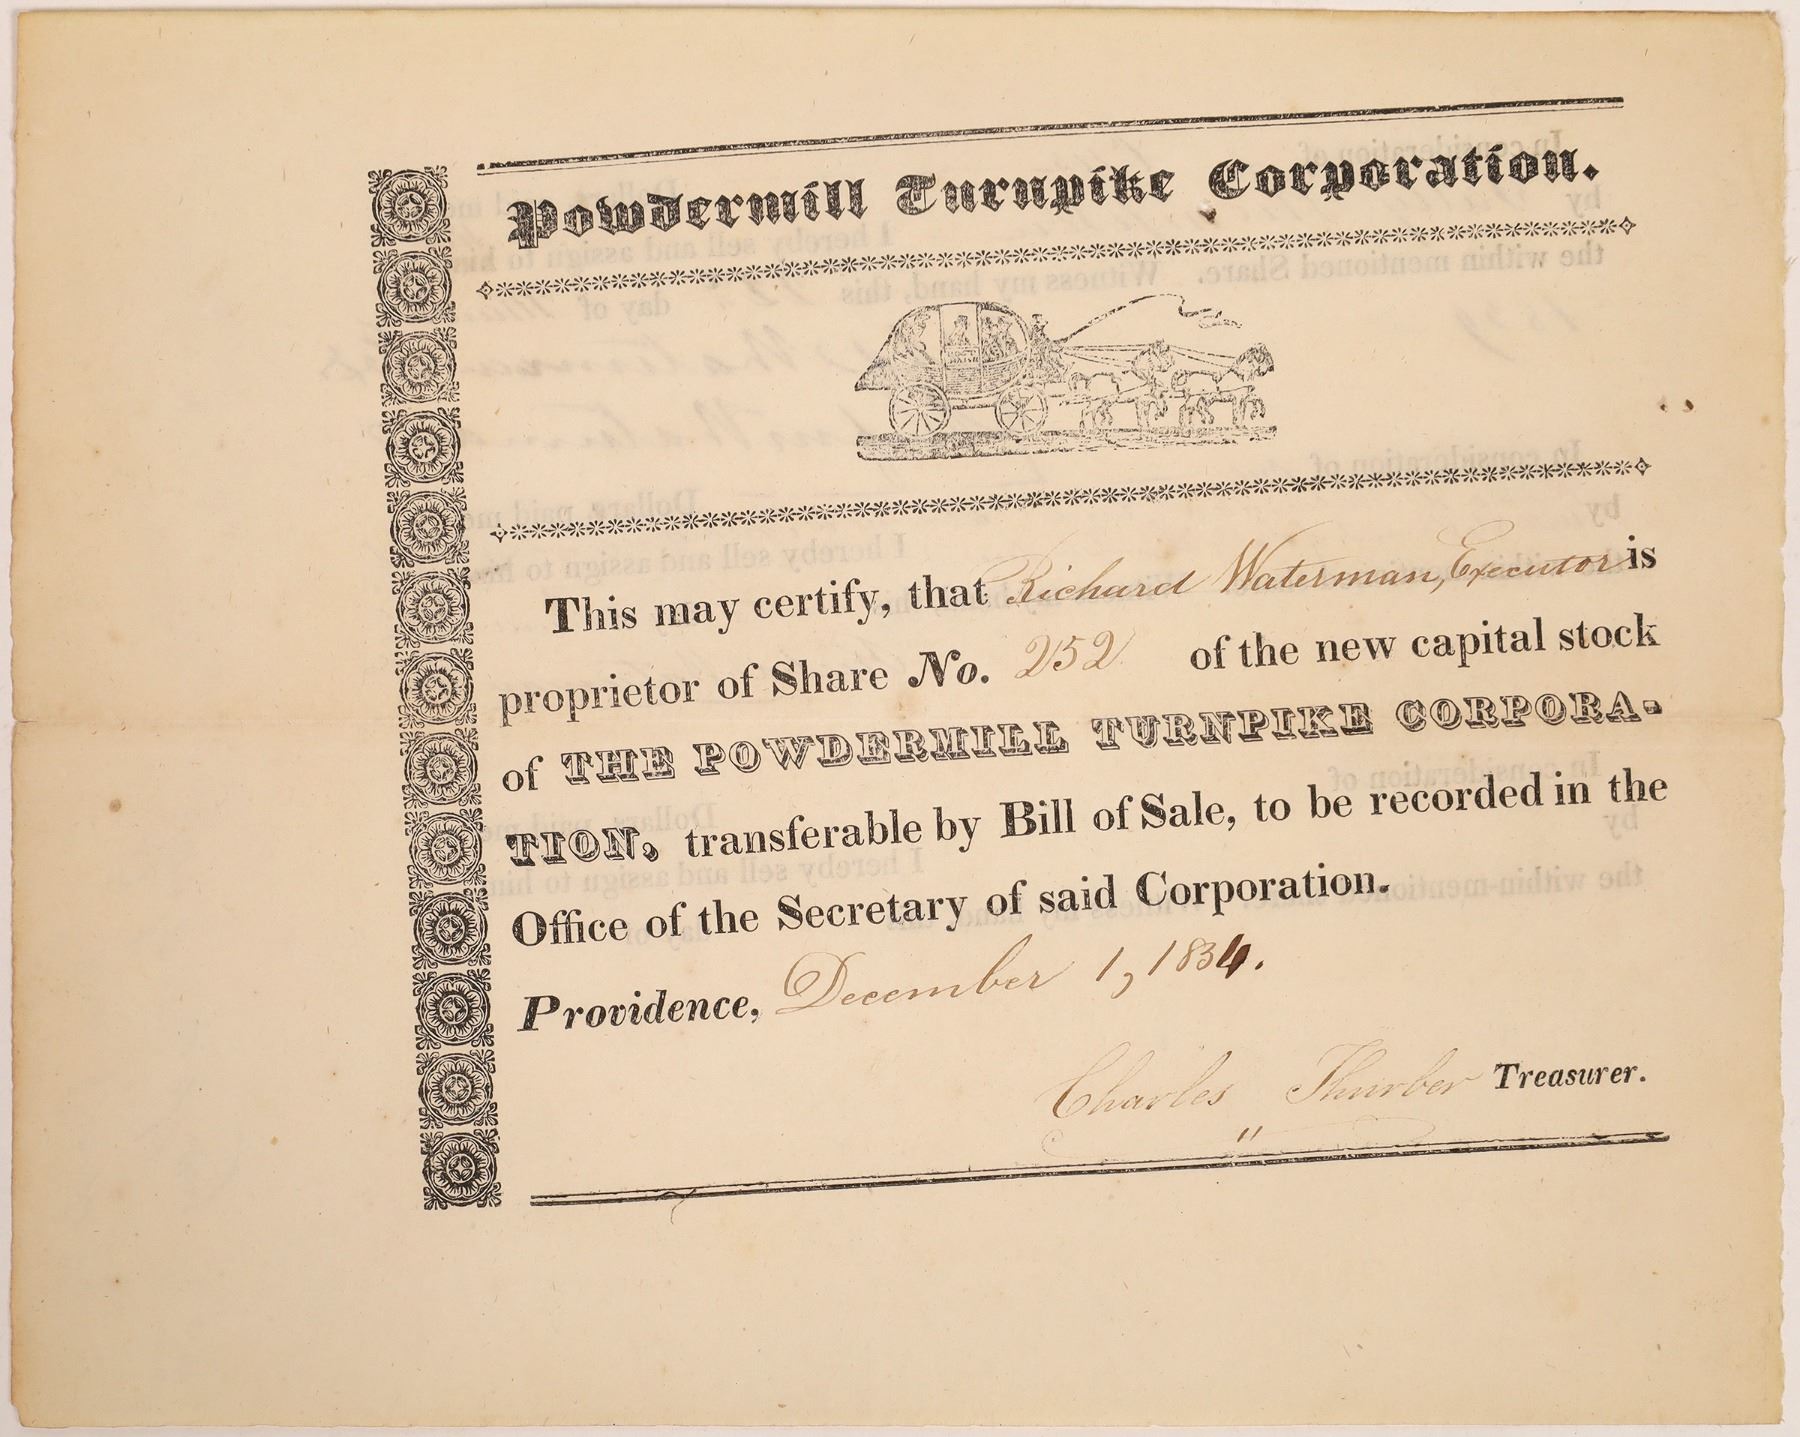 Powdermill Turnpike Corporation.
This may certify, that Richard Waterman, Executor is
proprietor of Share No. 252 of the new capital stock
of THE POWDERMILL TURNPIKE CORPORA-
TION, transferable by Bill of Sale, to be recorded in the
Office of the Secretary of said Corporation.
Providence, December 1, 1834.
Charles Thurber Treasurer.